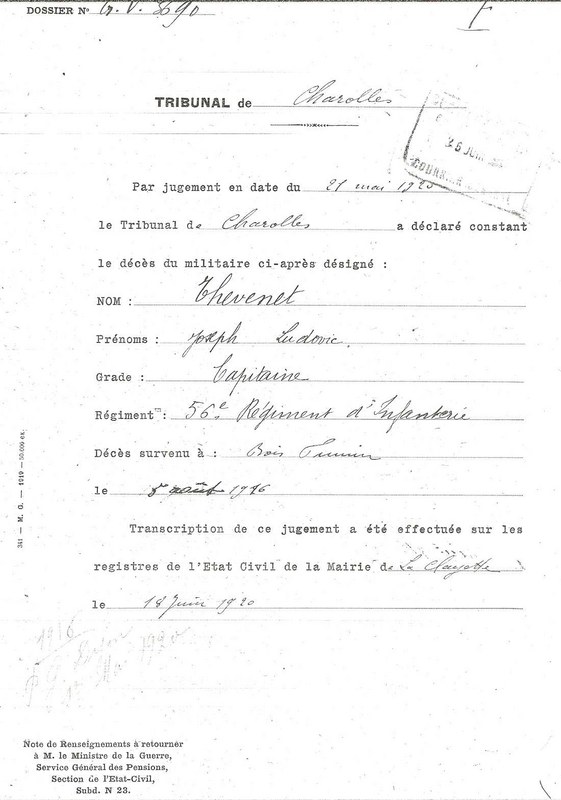 DOSSIER N° G.V. 890
F
TRIBUNAL de Charolles
26 JUIN
COURRIER
Par jugement en date du 21 mai 1920
le Tribunal de Charolles a déclaré constant
le décès du militaire ci-après désigné :
NOM : Thevenet
Prénoms : Joseph Ludovic.
Grade : Capitaine
Régiment : 56e Régiment d'Infanterie
Décès survenu à : Bois Fumin
le 5 août 1916
Transcription de ce jugement a été effectuée sur les
registres de l'Etat Civil de la Mairie de La Clayette
le 18 Juin 1920
1916
1920
Note de Renseignements à retourner
à M. le Ministre de la Guerre,
Service Général des Pensions,
Section de l'Etat-Civil,
Subd. N 23.
341 — M. G. — 1919 — 50.000 ex.